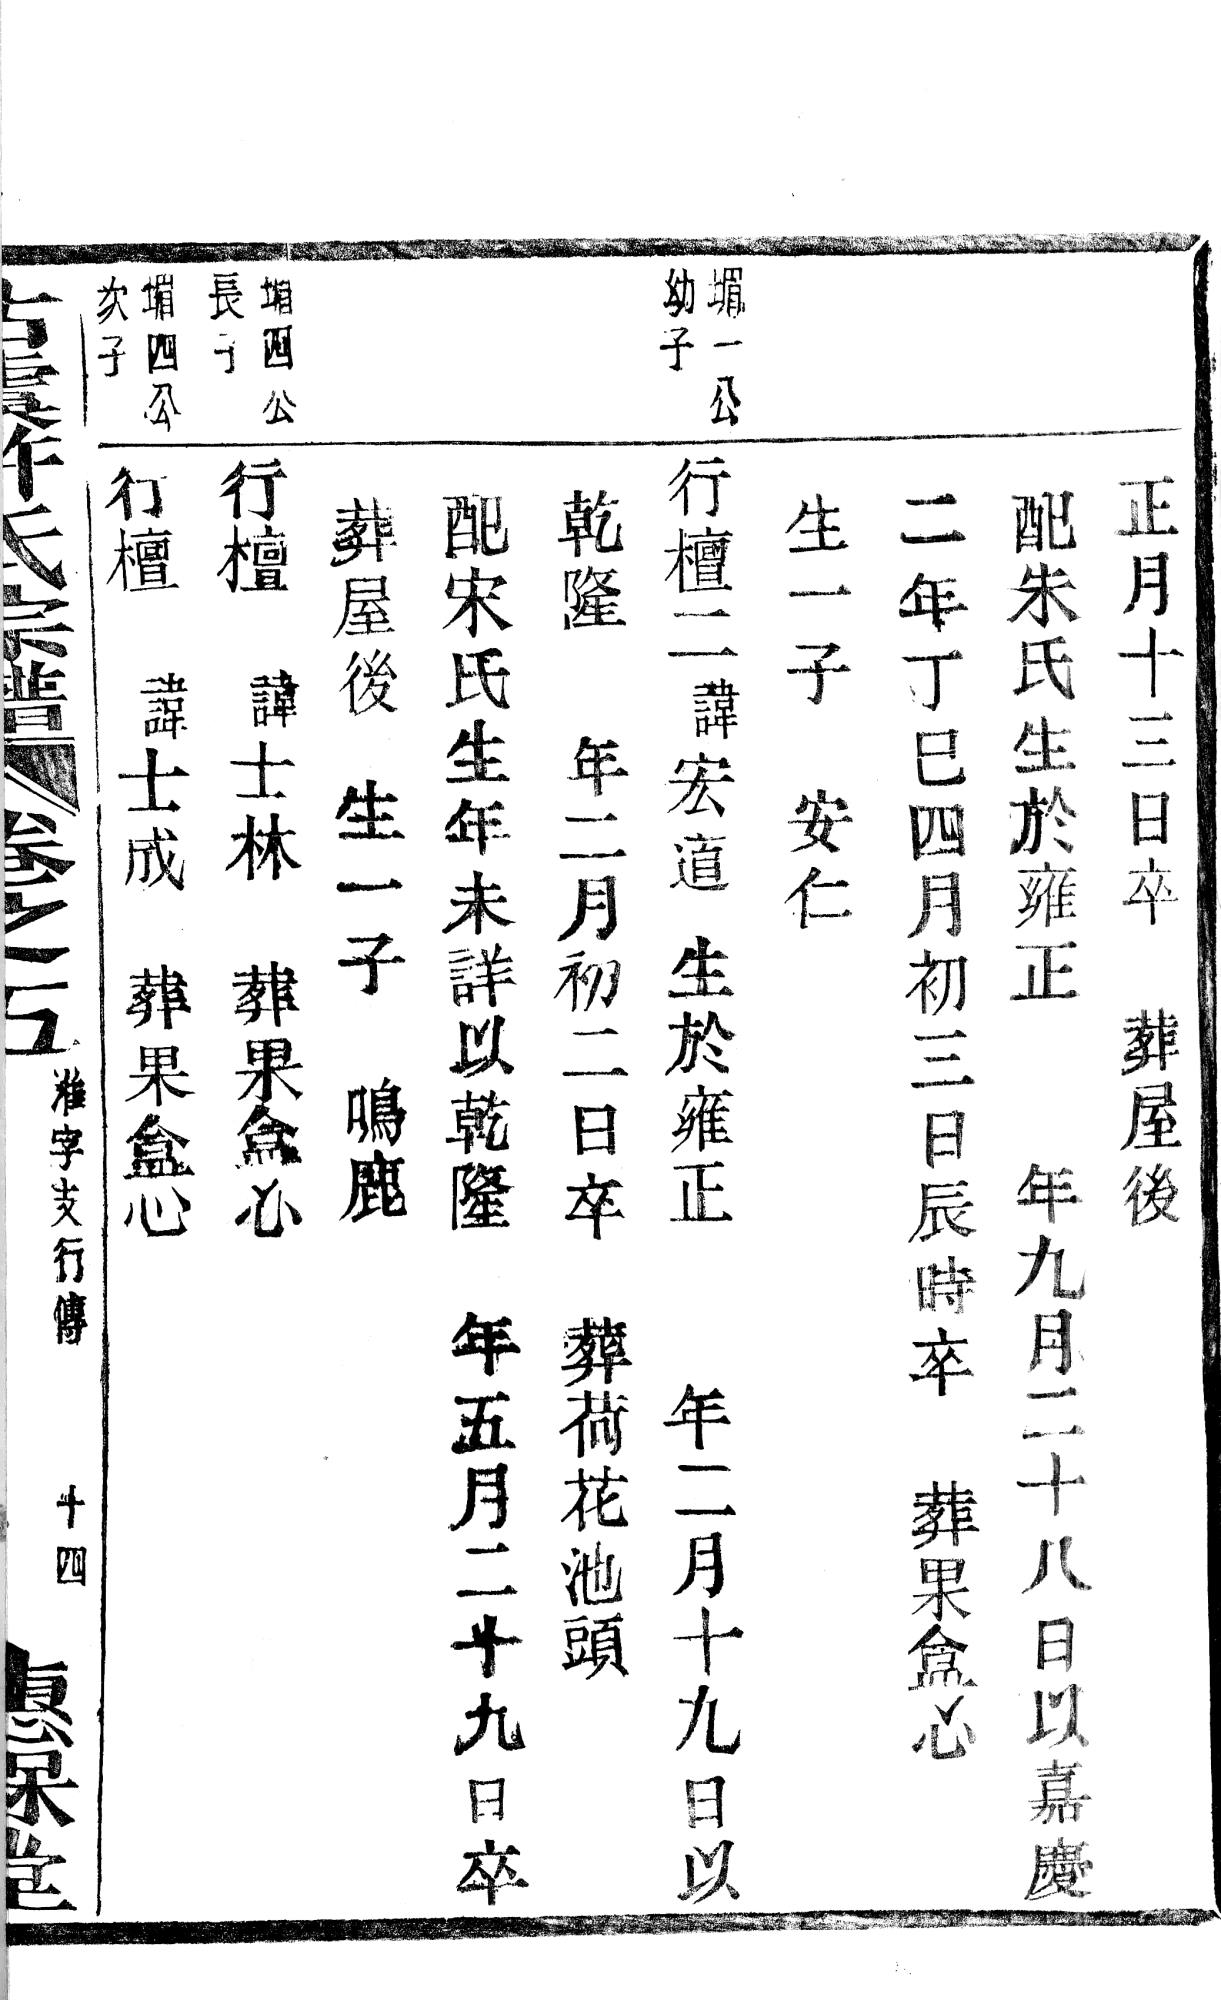 正月十三日卒　葬屋後
配朱氏生於雍正　年九月二十八日以嘉慶
二年丁巳四月初三日辰時卒　葬果盒心
生一子　安仁
堳一公
幼子
行檀二諱宏道　生於雍正　年二月十九日以
乾隆　年二月初二日卒　葬荷花池頭
配宋氏生年未詳以乾隆　年五月二十九日卒
葬屋後　生一子　鳴鹿
堳四公
長子
行檀　諱士林　葬果盒心
堳四公
次子
行檀　諱士成　葬果盒心
氏宗譜　卷之五　淮字支行傳　十四　惠保堂